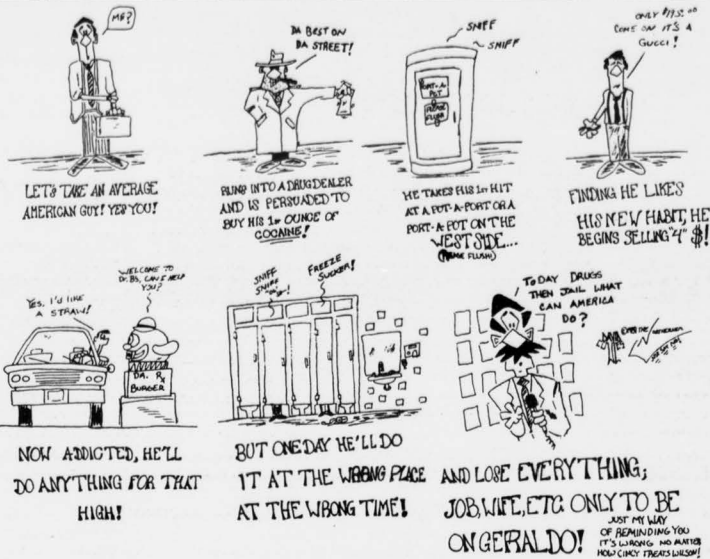 ME?
LET'S TAKE AN AVERAGE
AMERICAN GUY! YES YOU!
DA BEST ON
DA STREET!
RUNS INTO A DRUG DEALER
AND IS PERSUADED TO
BUY HIS 1ST OUNCE OF
COCAINE!
SNIFF
SNIFF
PORT-A
POT
PLEASE
FLUSH
HE TAKES HIS 1ST HIT
AT A POT-A-PORT OR A
PORT-A-POT ON THE
WEST SIDE...
(PLEASE FLUSH)
ONLY $195.00
COME ON IT'S A
GUCCI!
FINDING HE LIKES
HIS NEW HABIT, HE
BEGINS SELLING "4" $!
YES, I'D LIKE
A STRAW!
WELCOME TO
DR. B'S, CAN I HELP
YOU?
DR. R
BURGER
NOW ADDICTED, HE'LL
DO ANYTHING FOR THAT
HIGH!
SNIFF
SNIFF
FREEZE
SUCKER!
BUT ONE DAY HE'LL DO
IT AT THE WRONG PLACE
AT THE WRONG TIME!
TODAY DRUGS
THEN JAIL WHAT
CAN AMERICA
DO?
AND LOSE EVERYTHING;
JOB, WIFE, ETC. ONLY TO BE
ON GERALDO!
JUST MY WAY
OF REMINDING YOU
IT'S WRONG NO MATTER
HOW CINCY TREATS WILSON!